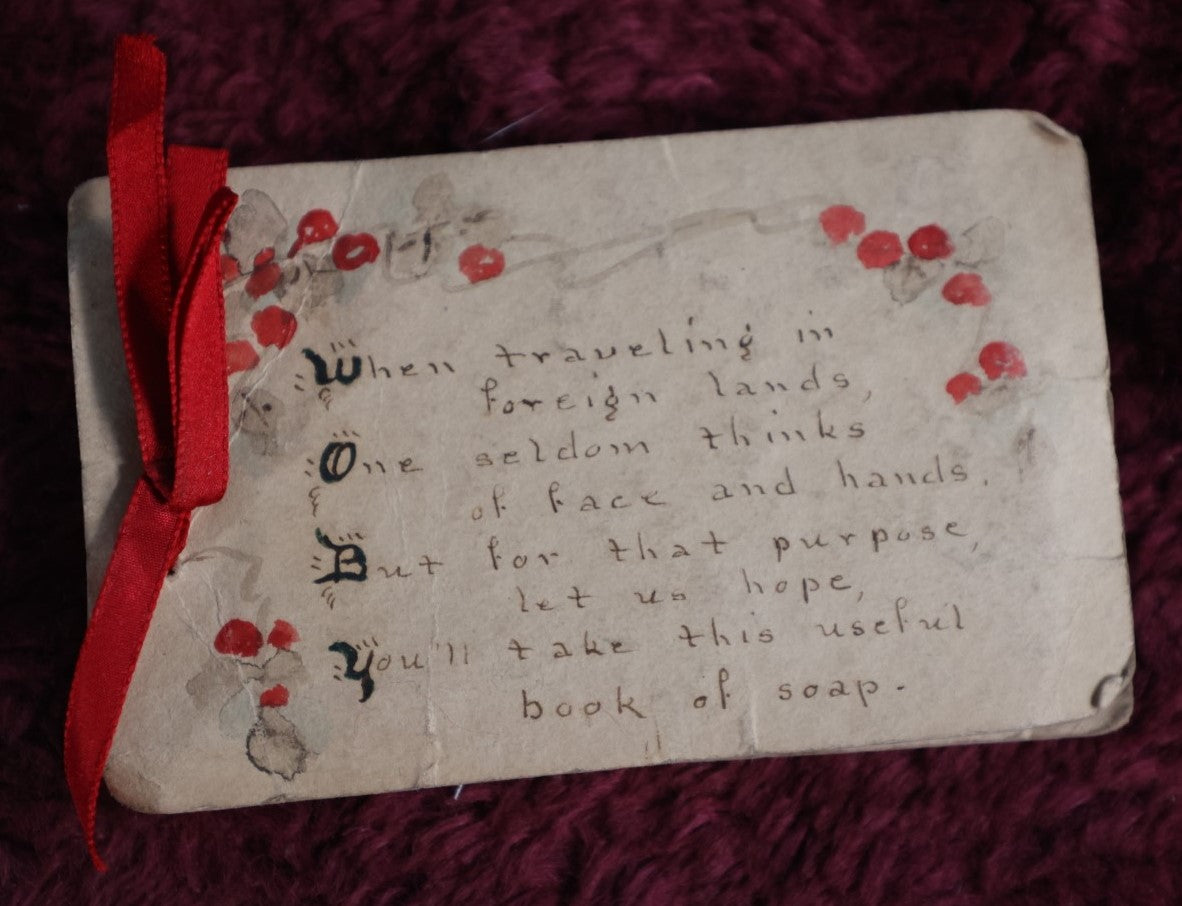 When traveling in
foreign lands,
One seldom thinks
of face and hands.
But for that purpose,
let us hope,
You'll take this useful
book of soap.